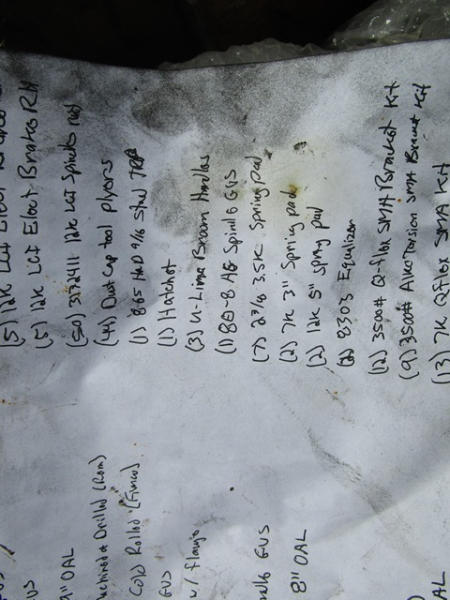 (5) 12K LCI Elect
(5) 12K LCI Elect Brakes RH
(50) 3172411 12K LCI Spindle nut
(44) Dust cap tool plyers
(1) 865 HD 9/16 Stud
(1) Hatchet
(3) U-Line Broom Handles
(1) 80-8 AG Spindle GVS
(7) 2 3/8 3.5K Spring pad
(2) 7K 3" Spring pad
(2) 12K 5" spring pad
(2) 8303 Equalizer
(12) 3500# Q-flex SMA Bracket Kit
(9) 3500# AlkoTorsion SMA Bracket Kit
(13) 7K QFlex SMA Kit
GVS
9" OAL
& Drilled (Rom)
Cold Rolled (Finco)
GVS
w/ flange
GVS
8" OAL
OAL